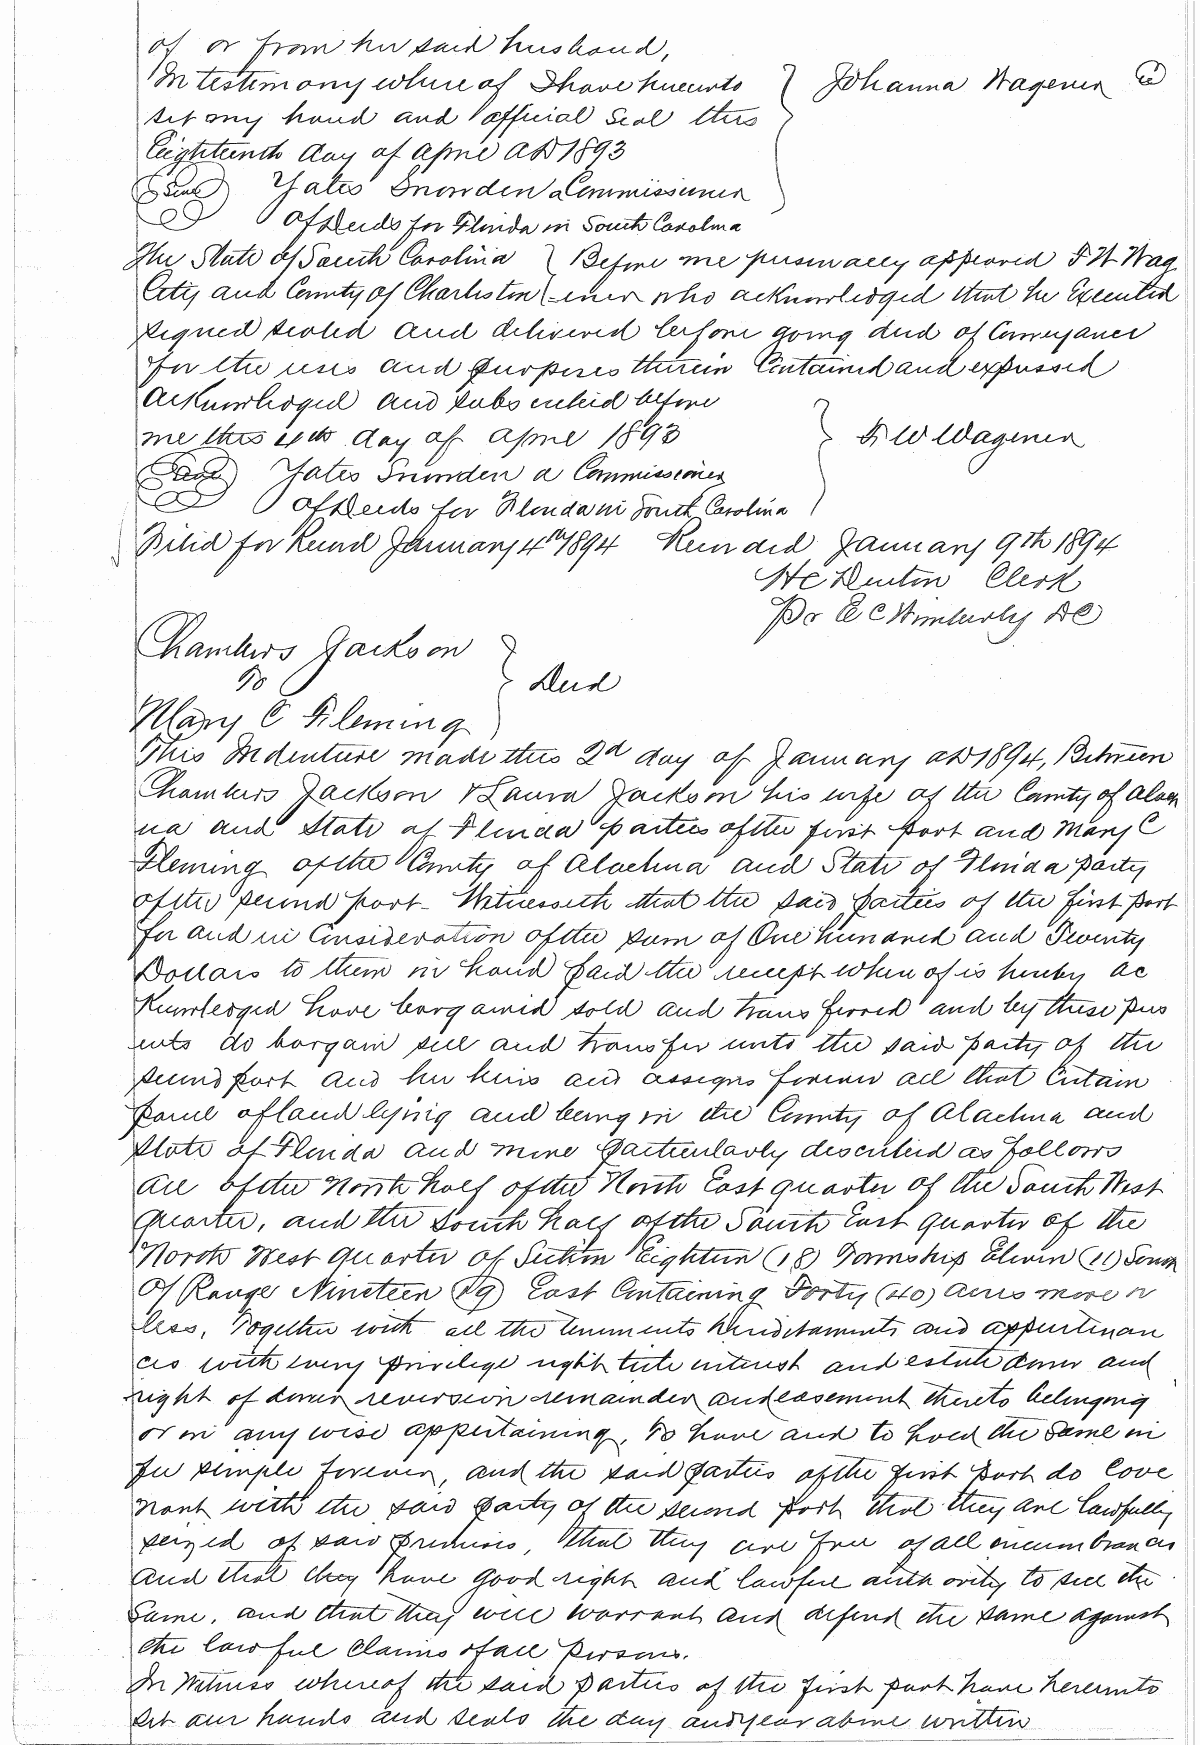 of or from her said husband,
In testimony where of I have hereunto } Johanna Wagener
set my hand and official seal this
Eighteenth day of April AD 1893
Seal Yates Snowden a Commissioner
of Deeds for Florida in South Carolina
The State of South Carolina } Before me personally appeared F W Wag
City and County of Charleston } ener who acknowledged that he Executed
signed sealed and delivered before going deed of Conveyance
for the uses and purposes therein Contained and expressed
Acknowledged and subscribed before
me this 4th day of April 1893 } F W Wagener
Seal Yates Snowden a Commissioner
of Deeds for Florida in South Carolina
Filed for Record January 4th 1894 Recorded January 9th 1894
H C Denton Clerk
Pr E C Wimberly DC
Chambers Jackson
To } Deed
Mary C Fleming
This Indenture made this 2d day of January AD 1894, Between
Chambers Jackson & Laura Jackson his wife of the County of Alach
ua and State of Florida parties of the first part and Mary C
Fleming of the County of Alachua and State of Florida party
of the second part - Witnesseth that the said parties of the first part
for and in Consideration of the sum of One hundred and Twenty
Dollars to them in hand paid the receipt where of is hereby ac
Knowledged have bargained sold and transferred and by these pres
ents do bargain sell and transfer unto the said party of the
second part and her heirs and assigns forever all that Certain
parcel of land lying and being in the County of Alachua and
State of Florida and more particularly described as follows
All of the North half of the North East quarter of the South West
Quarter, and the South half of the South East quarter of the
North West Quarter of Section Eighteen (18) Township Eleven (11) South
Of Range Nineteen (19) East Containing Forty (40) acres more or
less, Together with all the tenements hereditaments and appurtenan
ces with every privilege right title interest and estate dower and
right of dower reversion remainder and easement thereto belonging
or in any wise appertaining, To have and to hold the same in
fee simple forever, and the said parties of the first part do Cove
nant with the said party of the second part that they are lawfully
seized of said premises, that they are free of all incumbrances
and that they have good right and lawful authority to sell the
same, and that they will warrant and defend the same against
the lawful claims of all persons.
In Witness whereof the said parties of the first part have hereunto
set our hands and seals the day and year above written